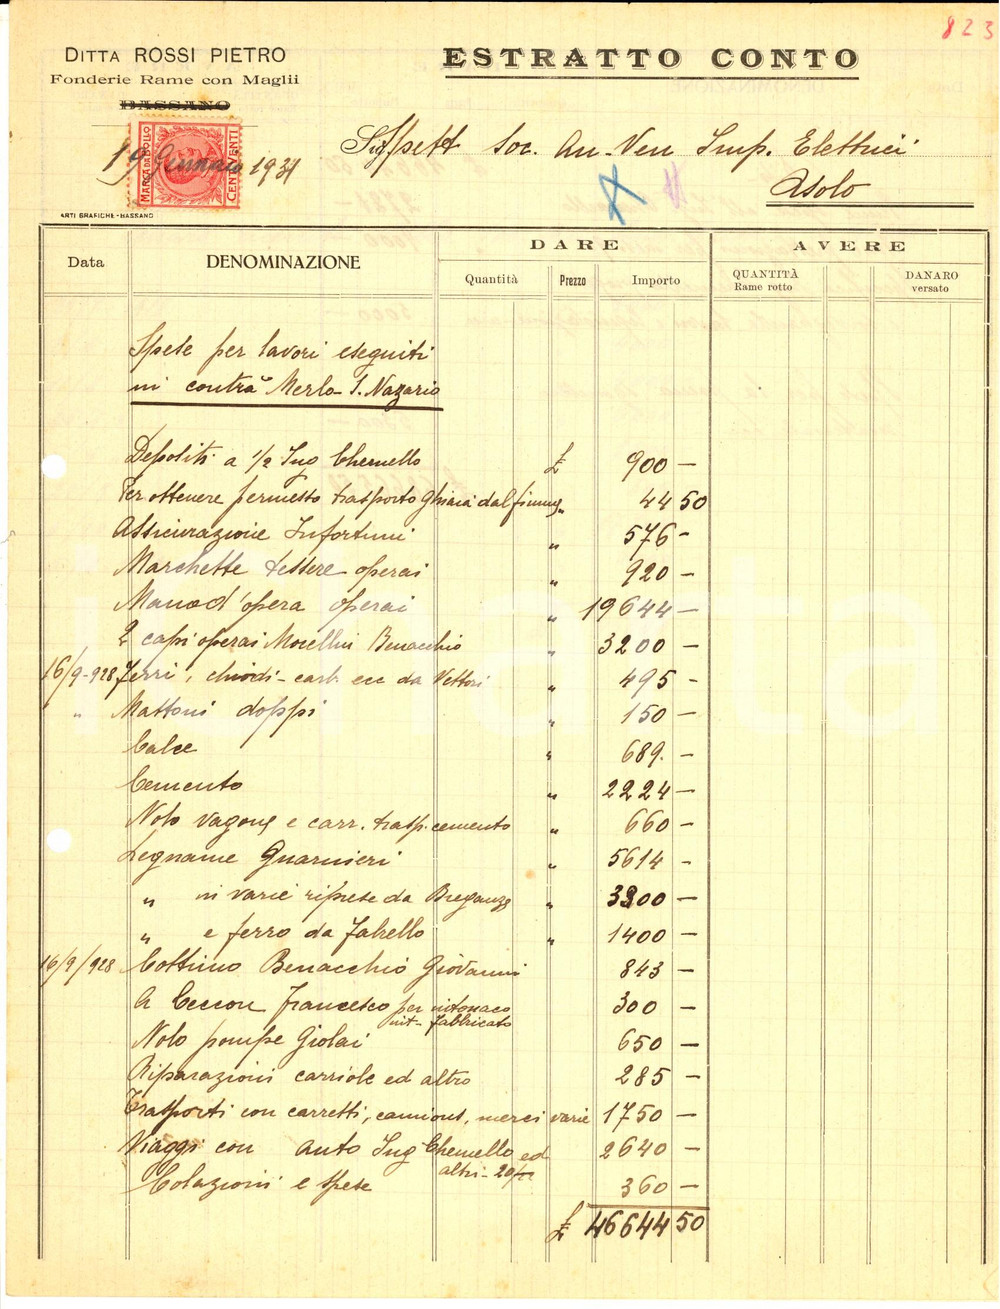 823
DITTA ROSSI PIETRO
Fonderie Rame con Maglii
BASSANO
ESTRATTO CONTO
MARCA DA BOLLO
CENT. VENTI
19 Gennaio 1931
Spett Soc. An. Ven Imp. Elettrici
Asolo
ARTI GRAFICHE - BASSANO
Data DENOMINAZIONE DARE AVERE
Quantità Prezzo Importo QUANTITÀ Rame rotto DANARO versato
Spese per lavori eseguiti
in contrà Merlo S. Nazario
Depositi a 1/2 Ing Chemello £ 900 —
Per ottenere permesso trasporto Ghiaia dal fiume " 44 50
Assicurazione Infortuni " 576 —
Marchette tessere operai " 920 —
Manod'opera operai " 19644 —
2 capi operai Morellini Benacchio " 3200 —
16/9-928 Ferri, chiodi - carb. ecc da Vettori " 495 —
" Mattoni doppi " 150 —
Calce " 689. —
Cemento " 2224 —
Nolo vagone e carr. trasp. cemento " 660 —
Legname Guarnieri " 5614 —
" in varie riprese da Breganze " 3200 —
" e ferro da Fabello " 1400 —
16/9/928 Cottimo Benacchio Giovanni 843 —
a Ceccon Francesco per intonaco 300 —
int. fabbricato
Nolo pompe Giolai 650 —
Riparazioni carriole ed altro 285 —
Trasporti con carretti, camions, merci varie 1750 —
Viaggi con auto Ing Chemello ed 2640 —
altri - 20
Colazioni e spese 360 —
£ 46644 50